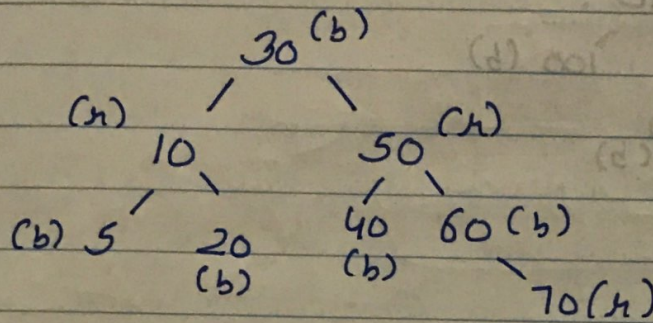 30 (b)
(r) 10 50 (r)
(b) 5 20 (b) 40 (b) 60 (b)
70 (r)
100 (b)
(b)